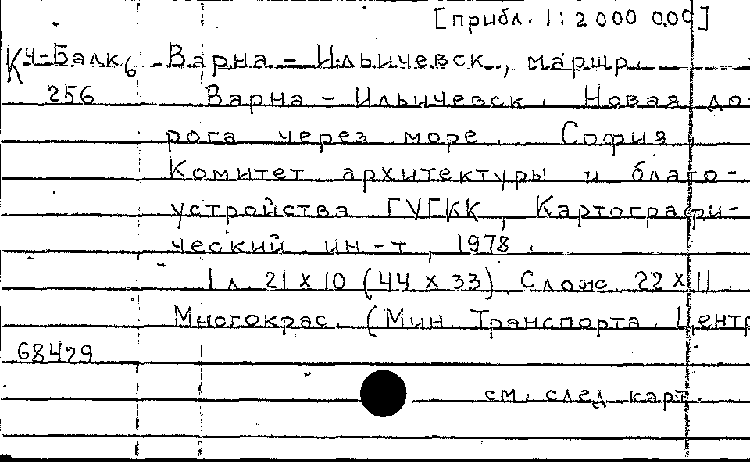 [прибл. 1:2 000 000]
К4-Балк6 Варна – Ильичевск, маршр.
256 Варна – Ильичевск. Новая до-
рога через море. София,
Комитет архитектуры и благо-
устройства ГУГКК, Картографи-
ческий ин-т, 1978.
1 л. 21 x 10 (44 x 33). Слож. 22 x 11
Многокрас. (Мин. Транспорта. Центр
68429
см. след. карт.